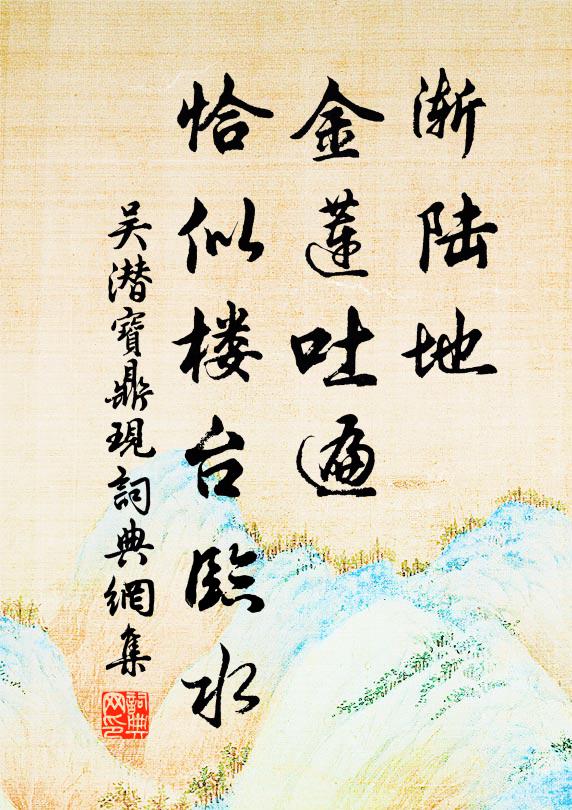 渐陆地
金莲吐遍
恰似楼台临水
吴潜寶鼎現詞典網集
詞典网印